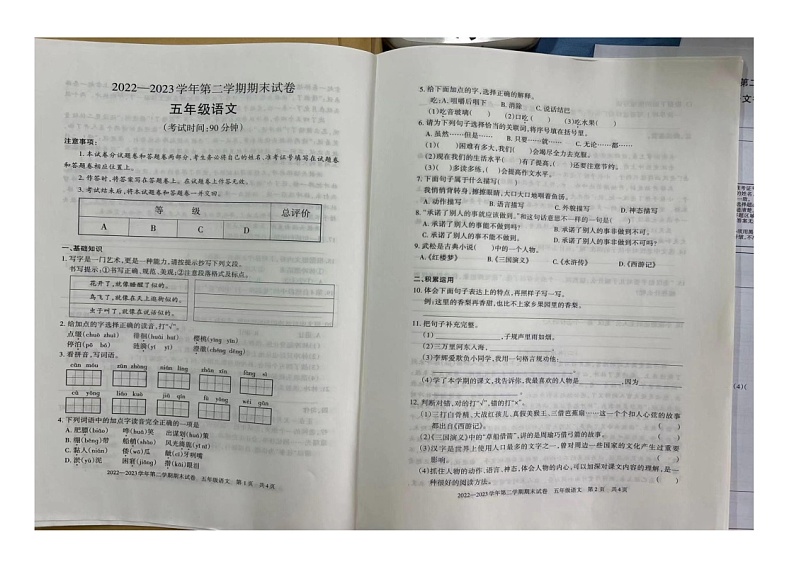 2022—2023学年第二学期期末试卷
五年级语文
(考试时间:90分钟)
注意事项:
1.本试卷分试题卷和答题卷两部分,考生务必将自己的姓名、准考证号填写在试题卷
和答题卷相应位置上。
2.作答时,将答案写在答题卷上。在试题卷上作答无效。
3.考试结束后,将本试题卷和答题卷一并交回。
等 级 总评价
A B C D
一、基础知识
1.写字是一门艺术,更是一种能力,请按提示抄写下列文段。
书写提示:①书写正确、规范、美观;②注意段落格式及标点。
花开了,就像睡醒了似的。
鸟飞了,就像在天上逛街似的。
虫子叫了,就像在说话似的。
2.给加点的字选择正确的读音,打“√”。
点缀(chuò zhuì) 徘徊(huái huí) 樱桃(yīng yīn)
停泊(pō bó) 涟漪(yī yí) 澄澈(chéng dèng)
3.看拼音,写词语。
4.下列词语中的加点字读音完全正确的一项是
A.肥膘(biāo) 哗(huá)笑 出谋划(huà)策
B.绷(bēng)带 船艄(shāo) 风光旖旎(yǐ nǐ)
C.黏人(nián) 倭(wō)瓜 龇(cī)牙咧嘴
D.淤(yū)泥 困窘(jiǒng) 揩(kāi)眼泪
2022—2023学年第二学期期末试卷 五年级语文 第1页 共4页
5.给下面加点的字,选择正确的解释。
吃:A.咀嚼后咽下 B.消除 C.说话结巴
(1)吃音玻璃( ) (2)口吃( ) (3)吃水果( )
6.请为下列句子选择恰当的关联词,将序号填在括号里。
A.虽然……但是…… B.只有……就…… C.无论……都……
(1)( )困难有多大,我们( )会竭尽全力去克服。
(2)现在我们的生活水平( )有了提高,( )还要注意节约。
(3)( )多读多练,( )会提高作文水平。
7.下面句子属于什么描写( )
我悄悄背转身,擦擦眼睛,大口大口地咽着鱼汤。
A.动作描写 B.语言描写 C.外貌描写 D.神态描写
8.“承诺了别人的事就应该做到。”和这句话意思不一样的一句是( )
A.承诺了别人的事能不做到吗? B.承诺了别人的事非做到不可。
C.承诺了别人的事不能不做到。 D.承诺了别人的事非做到不可吗?
9.武松是古典小说( )中的一个人物。
A.《红楼梦》 B.《三国演义》 C.《水浒传》 D.《西游记》
二、积累运用
10.体会下面句子表达上的特点,再照样子写一写。
例:这里的香梨再香甜,也比不上家乡果园里的香梨。
11.把句子补充完整。
(1) ,子规声里雨如烟。
(2)三万里河东入海, 。
(3)李娜爱欺负小同学,我用一句格言规劝他:
(4)学了本学期的课文,我告诉你,我最喜欢的人物是 ,因为
12.判断对错,对的打“√”,错的打“×”。
(1)三打白骨精、大战红孩儿、真假美猴王、三借芭蕉扇……这一个个扣人心弦的故事
都出自《西游记》。 ( )
(2)《三国演义》中的“草船借箭”,讲的是周瑜巧借弓箭的故事。 ( )
(3)汉字是世界上使用人口最多的文字之一,曾对周边一些国家的文化产生过重要
影响。 ( )
(4)抓住人物的动作、语言、神态,体会人物的内心,可以加深对课文内容的理解,是一
种很好的阅读方法。 ( )
2022—2023学年第二学期期末试卷 五年级语文 第2页 共4页